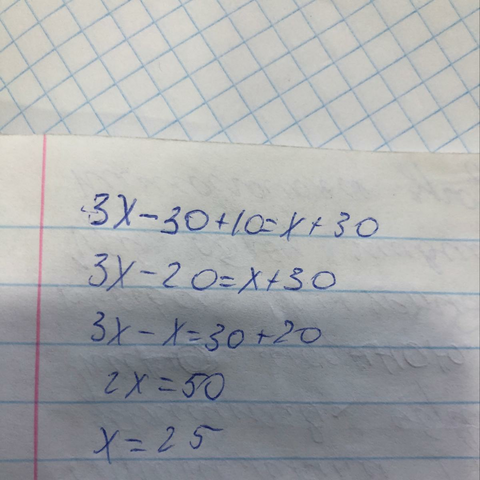 3x-30+10=x+30
3x-20=x+30
3x-x=30+20
2x=50
x=25